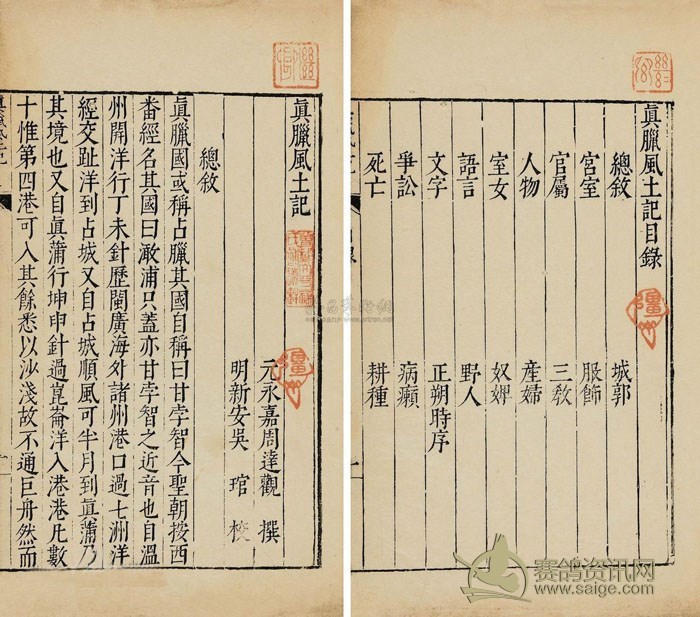 眞臘風土記目錄
總敘 城郭
宮室 服飾
官屬 三教
人物 産婦
室女 奴婢
語言 野人
文字 正朔時序
爭訟 病癩
死亡 耕種
眞臘風土記
元永嘉周達觀 撰
明新安吳 琯 校
總敘
眞臘國或稱占臘其國自稱曰甘孛智今聖朝按西
番經名其國曰澉浦只蓋亦甘孛智之近音也自溫
州開洋行丁未針歷閩廣海外諸州港口過七洲洋
經交趾洋到占城又自占城順風可半月到眞蒲乃
其境也又自眞蒲行坤申針過崑崙洋入港港凡數
十惟第四港可入其餘悉以沙淺故不通巨舟然而
赛鸽资讯网
www.saige.com